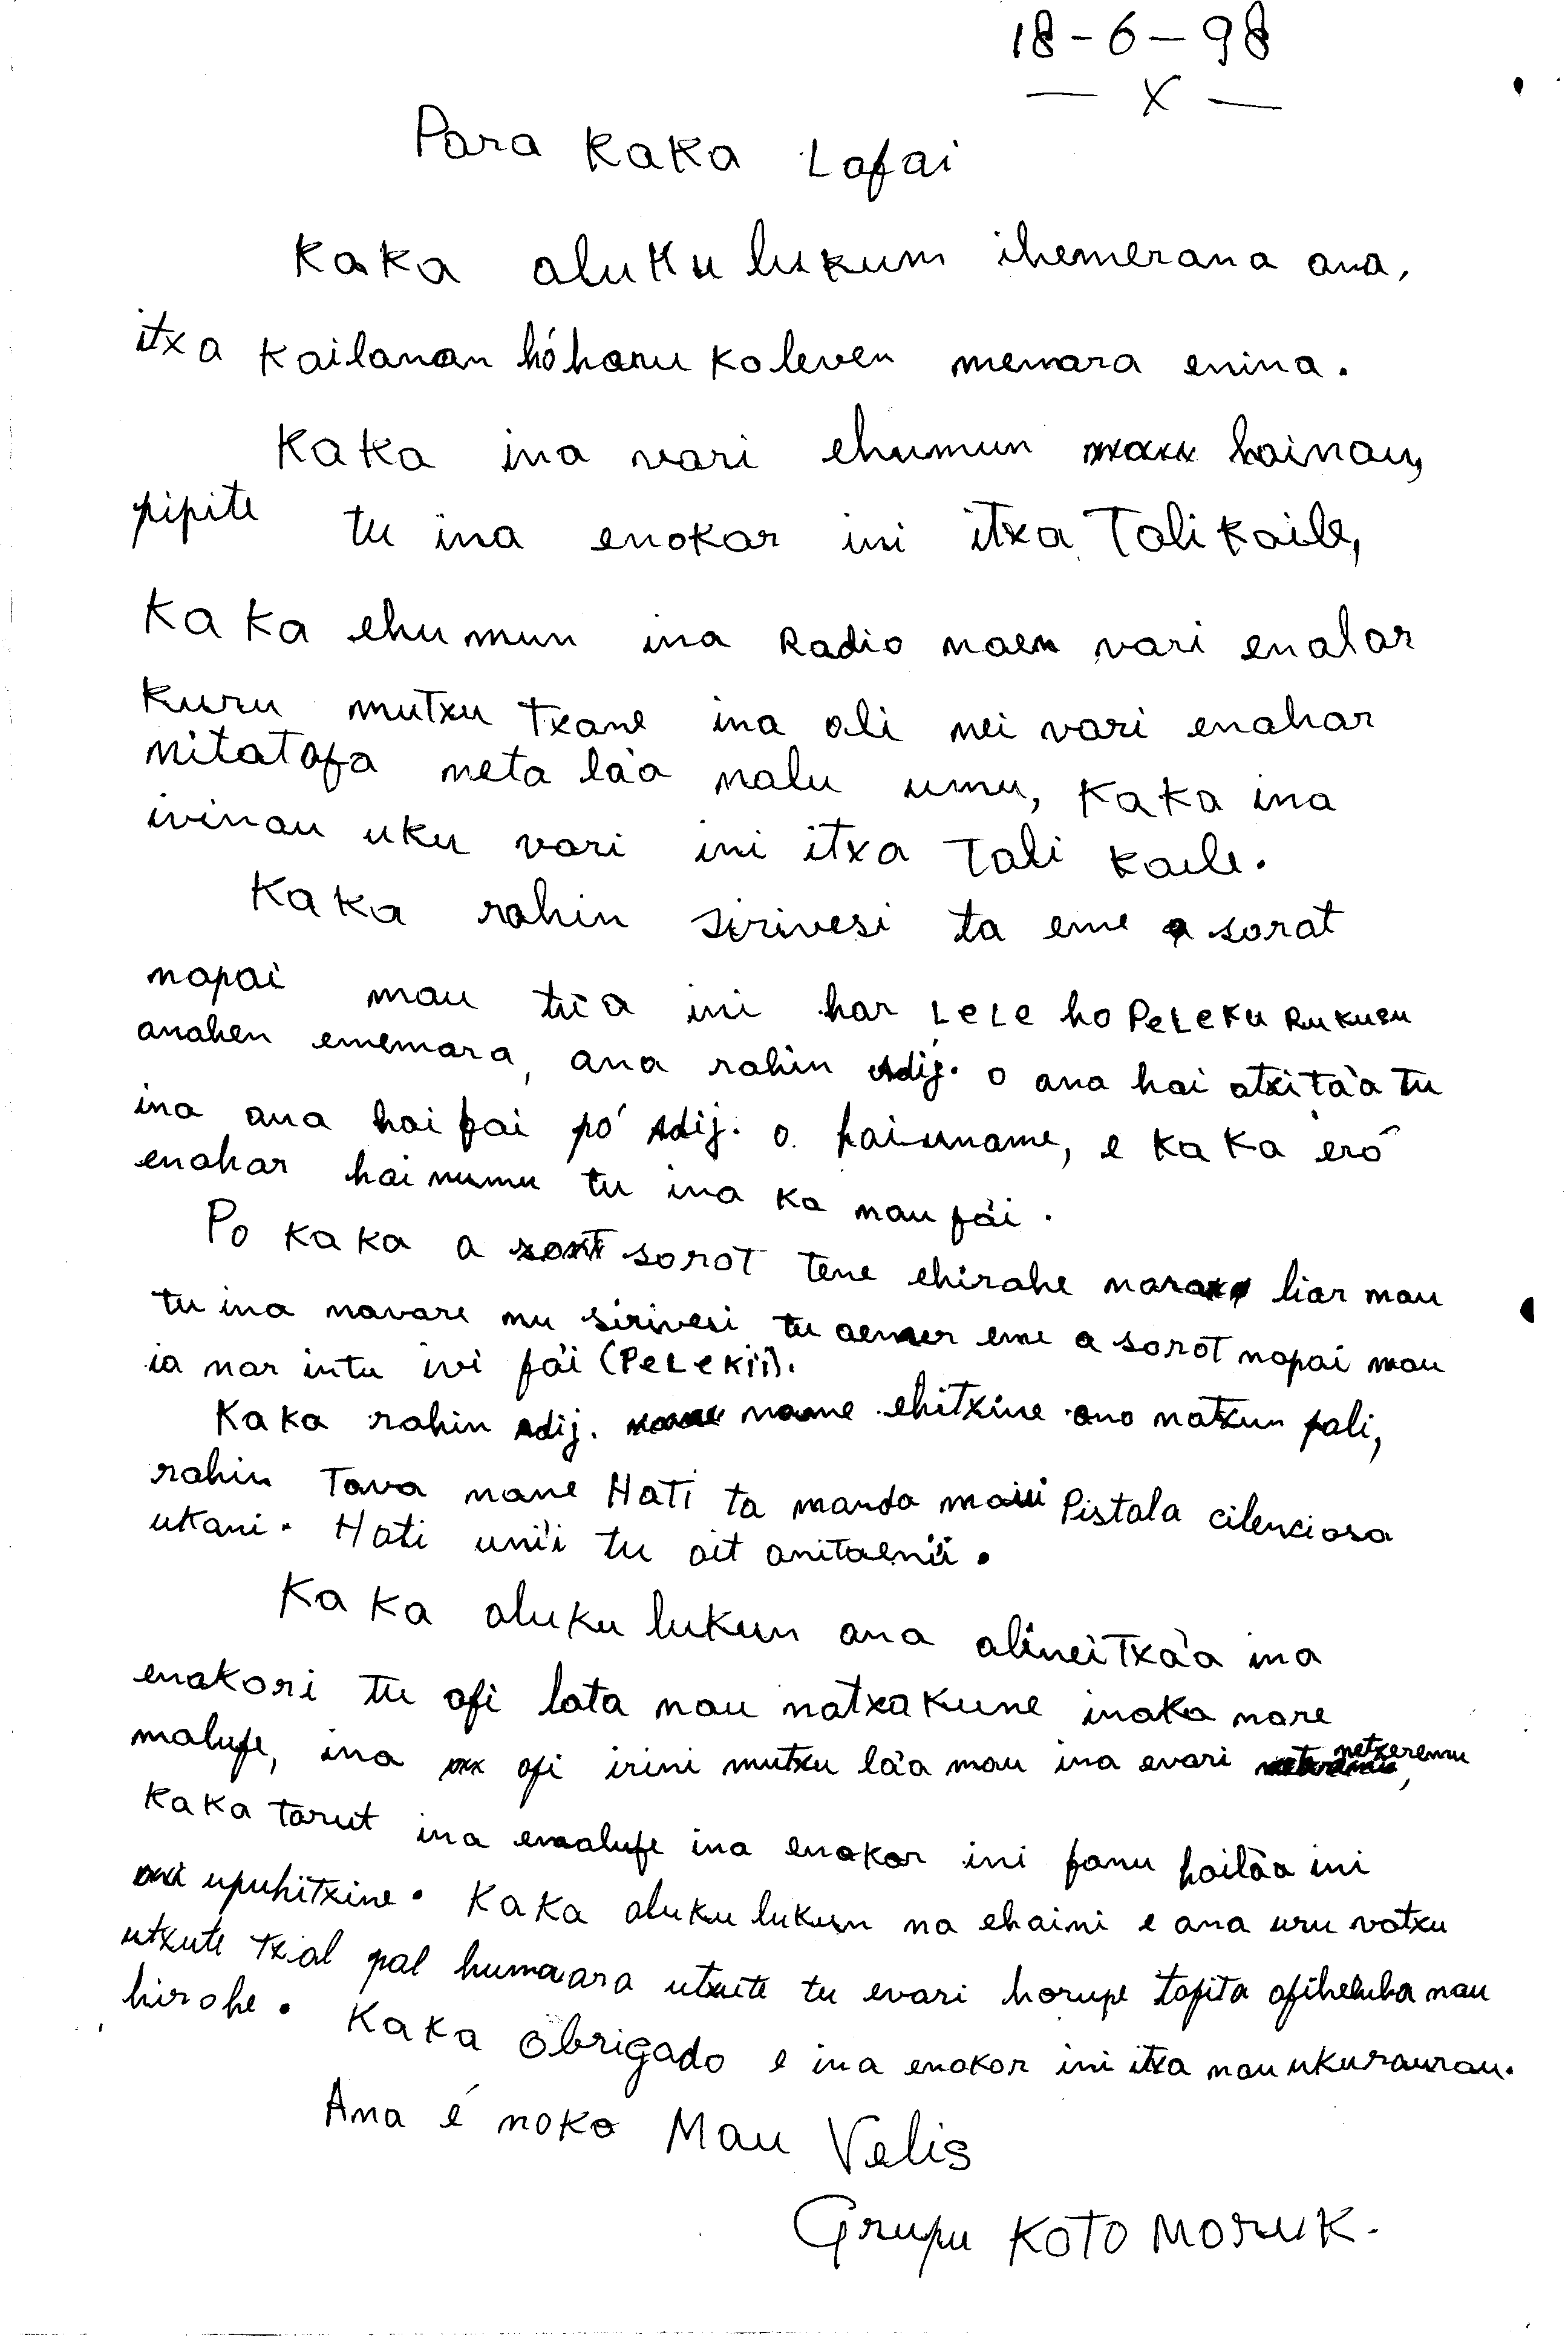 18-6-98
— X —
Para Kaka Lafai
Kaka aluku lukum ihemerana ana,
itxa kailanan hóhanu koleven memara enina.
Kaka ina vari ehumun hainau,
pipite tu ina enokar ini itxa Tali kaile,
Kaka ehumun ina Radio naen vari enalar
kuru mutxu Txane ina ali nei vari enahar
nitatafa neta la'a nalu umu, Kaka ina
ivinau uku vari ini itxa Tali kaile.
Kaka rahin sirivesi ta eme a sorat
napai mau tu'a ini har LeLe ho PeLeKu Rukusu
anahen ememara, ana rahin Adij. o ana hai atxita'a tu
ina ana hai fai po' Adij. o. fai-uname, e Kaka erô
enahar hai numu tu ina ka nau fa'i.
Po Kaka a sorot Tene ehirahe liar mau
tu ina navare nu sirivesi tu eme a sorot napai mau
ia nar intu ivi fa'i (PeLeKi'i).
Kaka rahin Adij. name ehitxine ono natxun pali,
rahin Tava nane Hati ta manda Pistala cilenciosa
ukani. Hati uni'i tu ait anitaeni'i.
Kaka aluku lukun ana alinei Txa'a ina
enakori tu afi lata nau natxakune inaka nare
malufe, ina afi irini mutxu la'a mau ina evari netxeremu,
Kaka tarut ina emalufe ina enakor ini fanu haila'a ini
upuhitxine. Kaka aluku lukun na ehaini e ana uru vatxu
utxute txal pal humaara utxute tu evari horupe tafita nau
hirahe. Kaka obrigado e ina enakor ini itxa nau ukuraurau.
Ama é noko Mau Velis
Grupu KOTO MORUK.